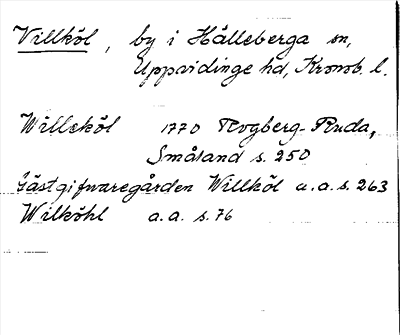 Villköl, by i Hälleberga sn,
Uppvidinge hd, Kronob. l.
Willeköl 1770 Rogberg-Ruda,
Småland s. 250
Gästgifvaregården Willköl a.a. s. 263
Wilköhl a.a. s. 76